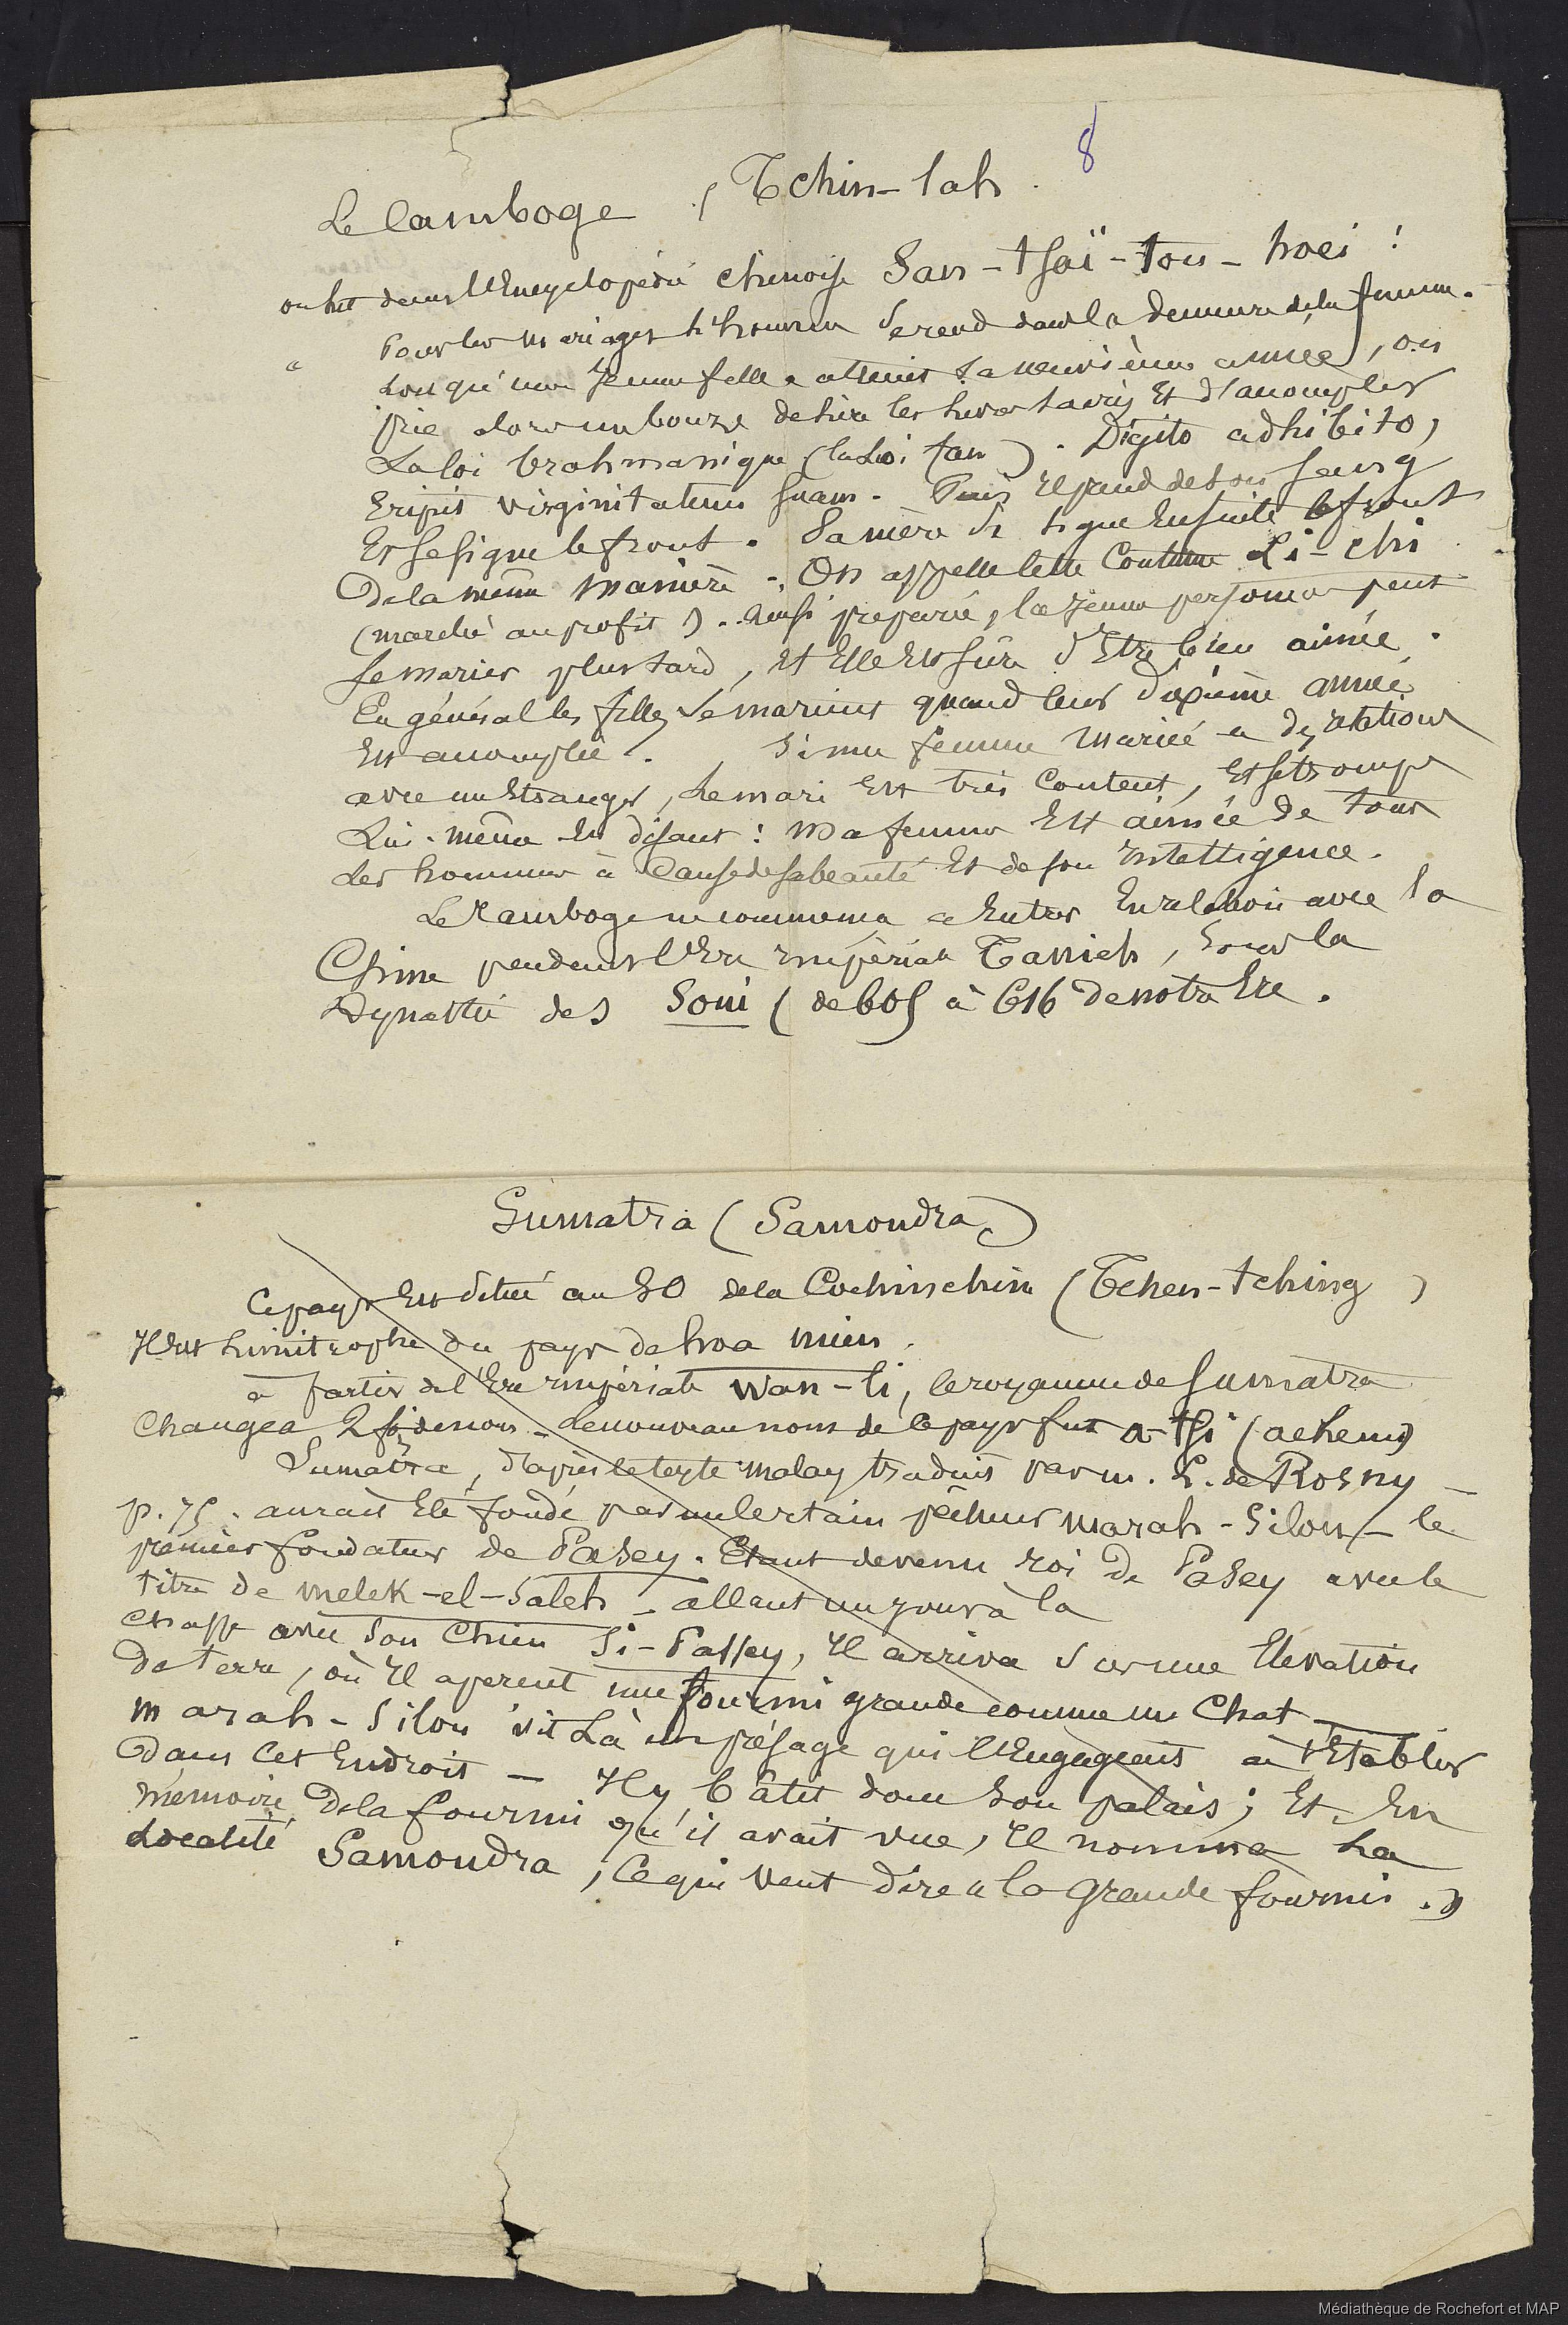 8
Le Camboge, Tchin-lah.
on lit dans l'Encyclopédie chinoise San-tsaï-tou-hoei :
" Pour les mariages l'homme se rend dans la demeure de la femme.
Lorsqu'une jeune fille a atteint sa neuvième année, on
prie alors un bonze de lire les livres sacrés et d'accomplir
La loi brahmanique (la Loi fan). Digito adhibito,
Eripit virginitatem suam. Puis il prend de son sang
Et se signe le front. Sa mère se signe Ensuite le front
De la même manière. On appelle cette Coutume Li-chi
(marché au profit). Ainsi préparée, la jeune personne peut
se marier plus tard, et Elle Est sûre d'Etre bien aimée.
En général les filles se marient quand leur dixième année
Est accomplie. Si une femme mariée a des relations
avec un Etranger, Le mari Est très Content, et se trompe
Lui-même en disant : ma femme Est aimée de tous
Les hommes à Cause de sa beauté Et de son Intelligence.
Le Kamboge ne commença à Entrer En relation avec la
Chine pendant l'Ere impériale Tanieh, sous la
Dynastie des Soui (de 605 à 616 de notre Ere.
Sumatra (Samoudra)
Ce pays Est situé au SO de la Cochinchine (Tchen-tching)
Il est limitrophe du pays de hoa mien.
à partir de l'Ere impériale Wan-li, le royaume de Sumatra
Changea 2 f. de nom. Le nouveau nom de ce pays fut A-tsi (achem)
Sumatra, d'après le texte malay traduit par m. L. de Rosny –
p. 75. aurait Eté fondé par un certain pêcheur Marah-Silou – le
premier fondateur de Pasey. Etant devenu roi De Pasey avec le
titre de Melek-el-Saleh – allant un jour à la
Chasse avec son Chien Si-Passey, Il arriva sur une Elévation
De terre, où Il aperçut une fourmi grande comme un Chat –
Marah-Silou vit Là un présage qui l'Engageait à s'Etablir
Dans Cet Endroit – Il y bâtit donc son palais ; Et En
mémoire De la fourmi qu'il avait vue, Il nomma La
Localité Samoudra, Ce qui veut dire " la Grande fourmi. "
Médiathèque de Rochefort et MAP